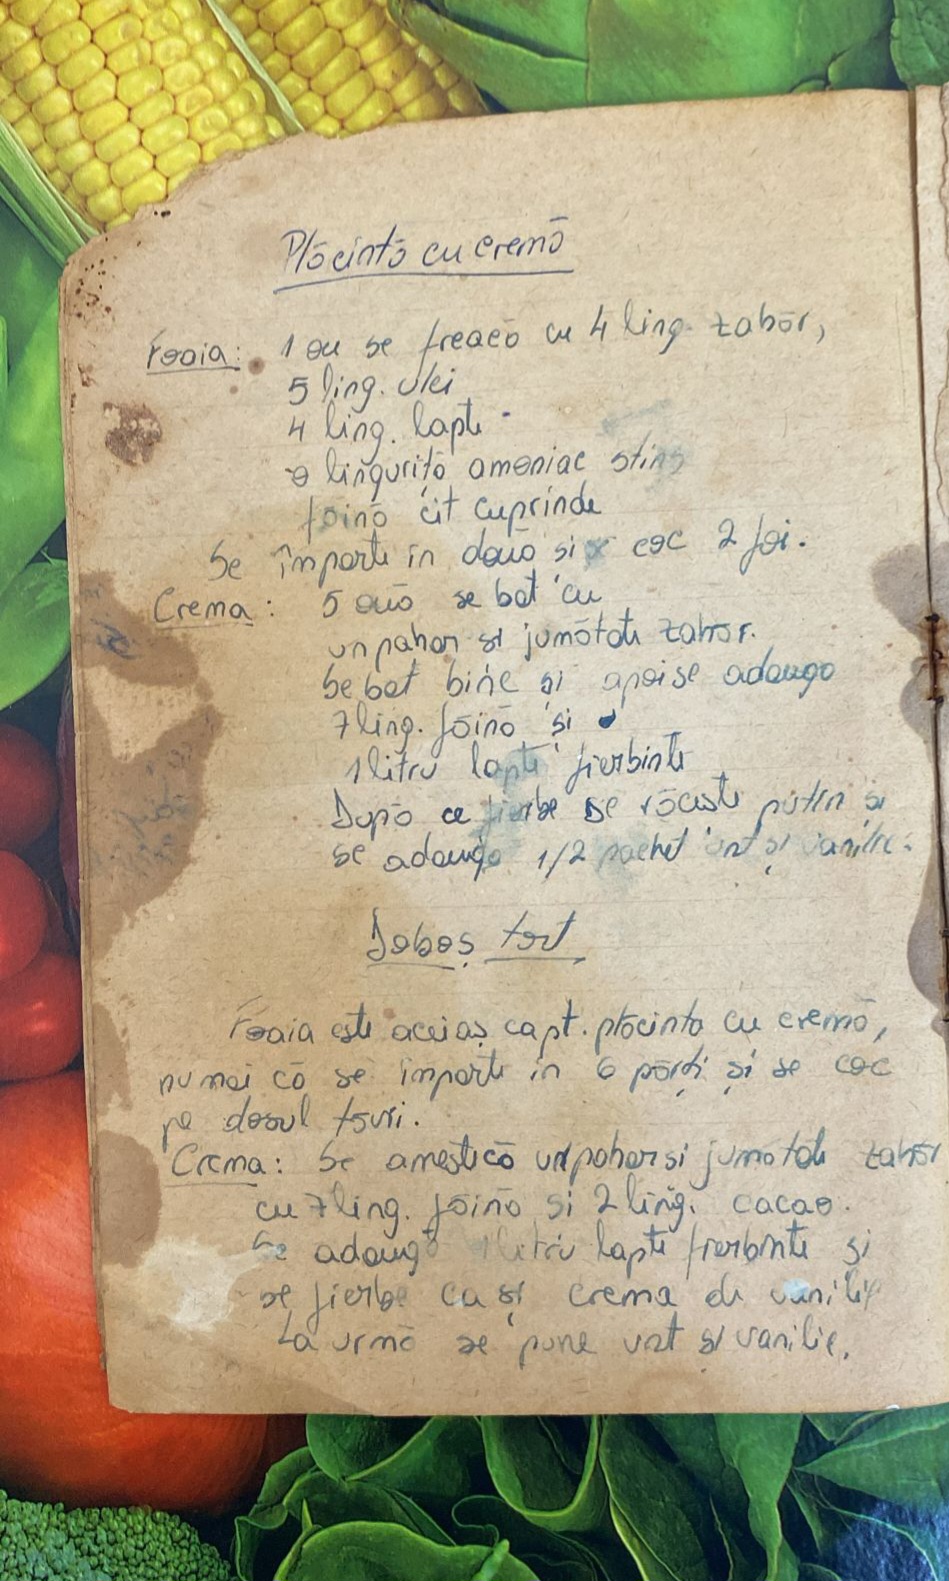 Plăcintă cu cremă
Foaia: 1 ou se freacă cu 4 ling. zahăr,
5 ling. ulei
4 ling. lapte
o linguriță amoniac stins
făină cît cuprinde
Se împarte în două si coc 2 foi.
Crema: 5 ouă se bat cu
un pahar si jumătate zahăr.
Se bat bine si apoi se adaugă
7 ling. făină și
1 litru lapte fierbinte
După ce fierbe se răcește puțin și
se adaugă 1/2 pachet unt și vanilie.
Doboș tort
Foaia este aceiaș ca pt. plăcinta cu cremă,
numai că se împarte în 6 părți și se coc
pe dosul tăvi.
Crema: Se amestică un pahar si jumătate zahăr
cu 7 ling. făină si 2 ling. cacao.
Se adaugă 1 litru lapte fierbinte si
se fierbe ca și crema de vanilie
La urmă se pune unt si vanilie.